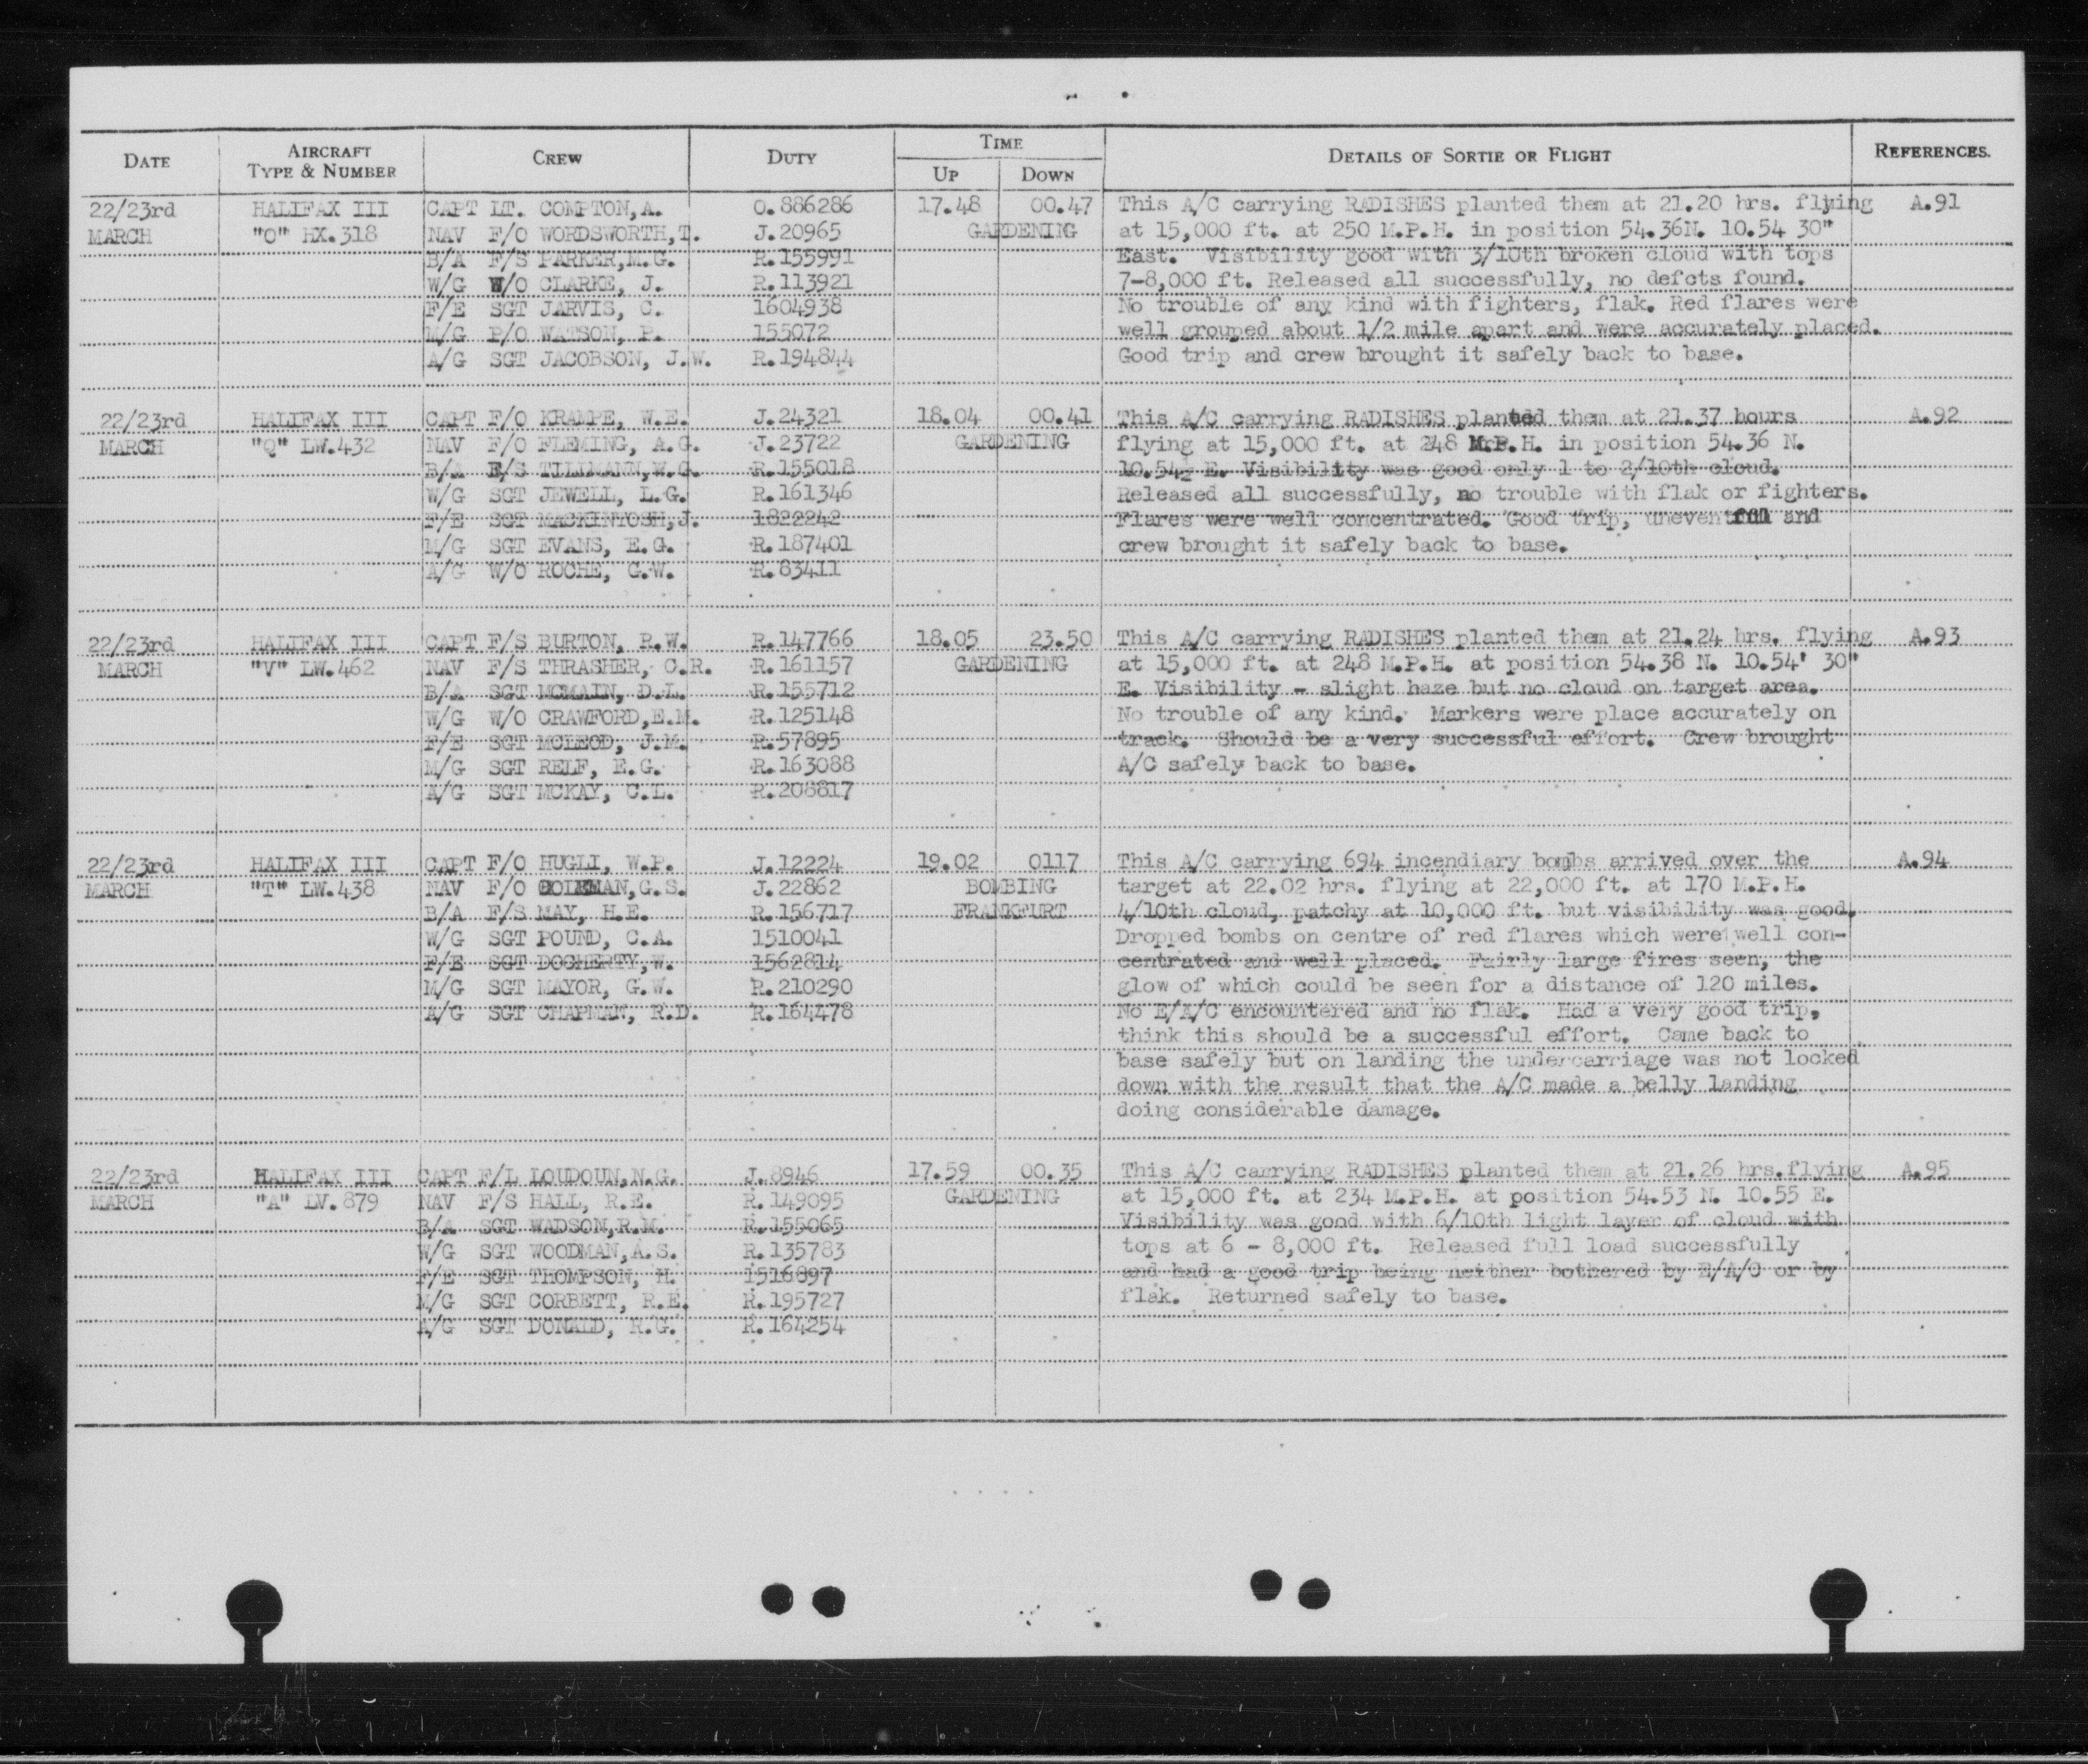 DATE AIRCRAFT TYPE & NUMBER CREW DUTY TIME UP DOWN DETAILS OF SORTIE OR FLIGHT REFERENCES.
22/23rd HALIFAX III CAPT LT. COMPTON,A. O.886286 17.48 00.47 This A/C carrying RADISHES planted them at 21.20 hrs. flying A.91
MARCH "O" HX.318 NAV F/O WORDSWORTH,T. J.20965 GARDENING at 15,000 ft. at 250 M.P.H. in position 54.36N. 10.54 30"
B/A F/S PARKER,M.G. R.155991 East. Visibility good with 3/10th broken cloud with tops
W/G W/O CLARKE, J. R.113921 7-8,000 ft. Released all successfully, no defcts found.
F/E SGT JARVIS, C. 1604938 No trouble of any kind with fighters, flak. Red flares were
M/G P/O WATSON, P. 155072 well grouped about 1/2 mile apart and were accurately placed.
A/G SGT JACOBSON, J.W. R.194844 Good trip and crew brought it safely back to base.
22/23rd HALIFAX III CAPT F/O KRAMPE, W.E. J.24321 18.04 00.41 This A/C carrying RADISHES planted them at 21.37 hours A.92
MARCH "Q" LW.432 NAV F/O FLEMING, A.G. J.23722 GARDENING flying at 15,000 ft. at 248 M.P.H. in position 54.36 N.
B/A F/S TILLMANN,W.G. R.155018 10.54½ E. Visibility was good only 1 to 2/10th cloud.
W/G SGT JEWELL, L.G. R.161346 Released all successfully, no trouble with flak or fighters.
F/E SGT MACKINTOSH,J. 1822242 Flares were well concentrated. Good trip, uneventful and
M/G SGT EVANS, E.G. R.187401 crew brought it safely back to base.
A/G W/O ROCHE, G.W. R.83411
22/23rd HALIFAX III CAPT F/S BURTON, R.W. R.147766 18.05 23.50 This A/C carrying RADISHES planted them at 21.24 hrs. flying A.93
MARCH "V" LW.462 NAV F/S THRASHER, C.R. R.161157 GARDENING at 15,000 ft. at 248 M.P.H. at position 54.38 N. 10.54' 30"
B/A SGT MCMAIN, D.L. R.155712 E. Visibility - slight haze but no cloud on target area.
W/G W/O CRAWFORD,E.M. R.125148 No trouble of any kind. Markers were place accurately on
F/E SGT MCLEOD, J.M. R.57895 track. Should be a very successful effort. Crew brought
M/G SGT RELF, E.G. R.163088 A/C safely back to base.
A/G SGT MCKAY, C.L. R.208817
22/23rd HALIFAX III CAPT F/O HUGLI, W.P. J.12224 19.02 0117 This A/C carrying 694 incendiary bombs arrived over the A.94
MARCH "T" LW.438 NAV F/O COLEMAN,G.S. J.22862 BOMBING target at 22.02 hrs. flying at 22,000 ft. at 170 M.P.H.
B/A F/S MAY, H.E. R.156717 FRANKFURT 4/10th cloud, patchy at 10,000 ft. but visibility was good.
W/G SGT POUND, C.A. 1510041 Dropped bombs on centre of red flares which were well con-
F/E SGT DOCHERTY,W. 1562814 centrated and well placed. Fairly large fires seen, the
M/G SGT MAYOR, G.W. R.210290 glow of which could be seen for a distance of 120 miles.
A/G SGT CHAPMAN, R.D. R.164478 No E/A/C encountered and no flak. Had a very good trip,
think this should be a successful effort. Came back to
base safely but on landing the undercarriage was not locked
down with the result that the A/C made a belly landing
doing considerable damage.
22/23rd HALIFAX III CAPT F/L LOUDOUN,N.G. J.8946 17.59 00.35 This A/C carrying RADISHES planted them at 21.26 hrs.flying A.95
MARCH "A" LV.879 NAV F/S HALL, R.E. R.149095 GARDENING at 15,000 ft. at 234 M.P.H. at position 54.53 N. 10.55 E.
B/A SGT WADSON,R.M. R.155065 Visibility was good with 6/10th light layer of cloud with
W/G SGT WOODMAN,A.S. R.135783 tops at 6 - 8,000 ft. Released full load successfully
F/E SGT THOMPSON, H. 1516897 and had a good trip being neither bothered by E/A/C or by
M/G SGT CORBETT, R.E. R.195727 flak. Returned safely to base.
A/G SGT DONALD, R.G. R.164254